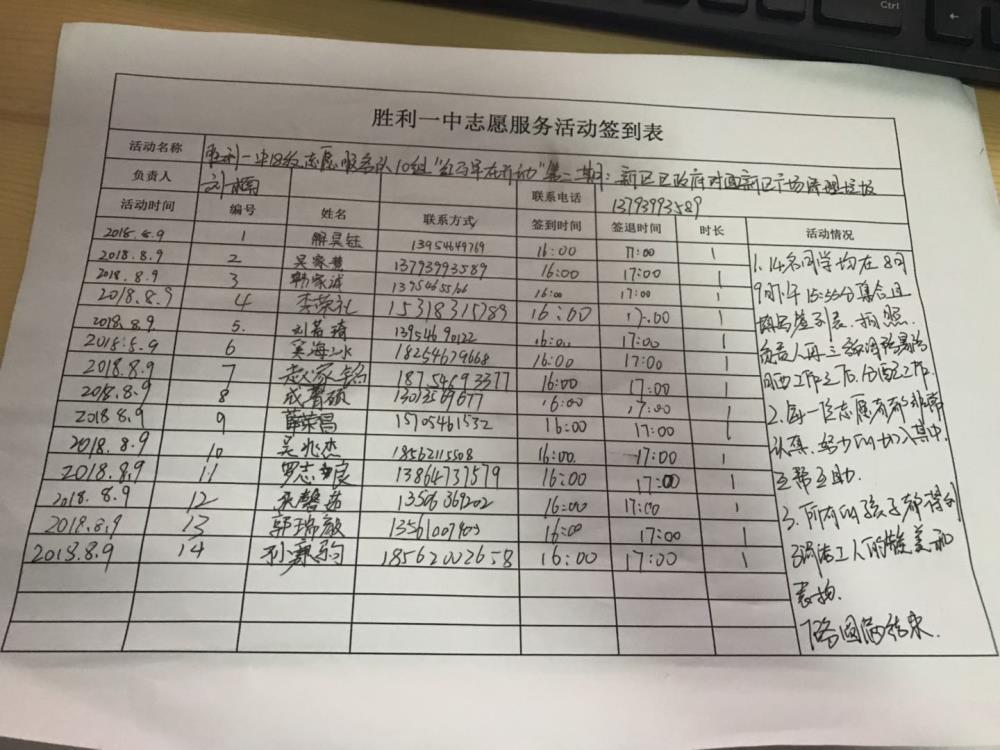 Ctrl
胜利一中志愿服务活动签到表
活动名称 胜利一中18级志愿服务队10组"红马甲在行动"第二期：新区区政府对面新区广场清理垃圾
负责人 刘梅 联系电话 13793993589
活动时间 编号 姓名 联系方式 签到时间 签退时间 时长 活动情况
2018.8.9 1 解昊钰 13954649769 16:00 17:00 1
2018.8.9 2 吴家慧 13793993589 16:00 17:00 1
2018.8.9 3 韩家诚 16:00 17:00 1
2018.8.9 4 李荣礼 15318315789 16:00 17:00 1
2018.8.9 5. 刘 琦 13954690122 16:00 17:00 1
2018.8.9 6 吴海冰 18254679668 16:00 17:00 1
2018.8.9 7 赵家铭 18754693377 16:00 17:00 1
2018.8.9 8 成 硕 16:00 17:00 1
2018.8.9 9 薛荣昌 15705461532 16:00 17:00 1
2018.8.9 10 吴兆杰 18562115508 16:00 17:00 1
2018.8.9 11 罗志良 13864737579 16:00 17:00 1
2018.8.9 12 13506369202 16:00 17:00 1
2018.8.9 13 郭瑞 13561007903 16:00 17:00 1
2018.8.9 14 18562002658 16:00 17:00 1
1.14名同学均在8月
9日下午15:55分集合且
签到表.拍照.
负责人再三强调
工作之后,分配工作.
2.每一位志愿者都非常
认真.好多 加入其中.
互帮互助.
3.所有的孩子都得到
清洁工人的赞美和
表扬.
圆满结束.